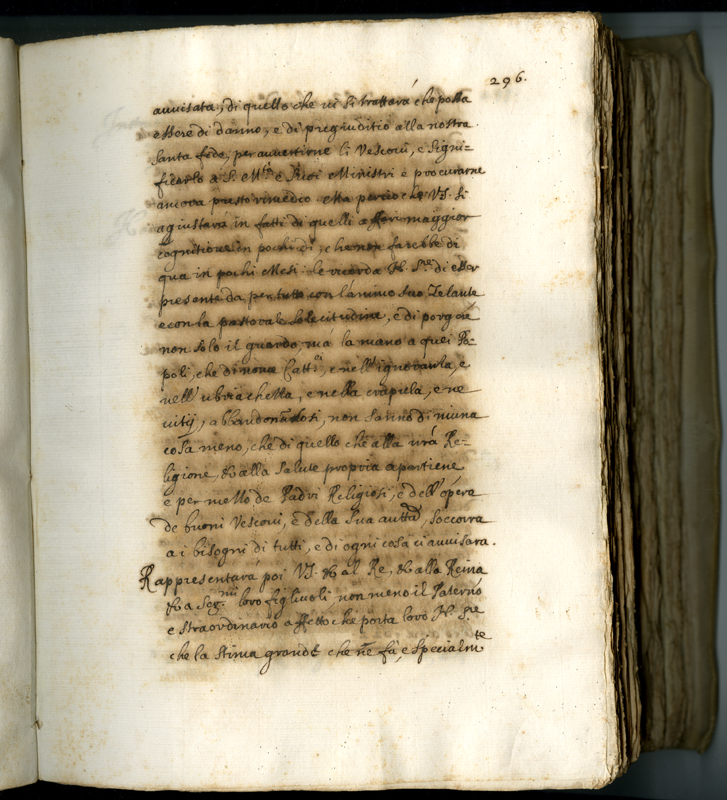 296.
avvisata, di quello che vi si trattarà che possa
essere di danno, e di pregiuditio alla nostra
santa fede, per avvertirne li Vescovi, e signi-
ficarlo a S. M.tà e suoi Ministri e procurarne
ancora presto rimedio Ma percio che V.S. si
agiustarà in fatti di quelli a maggior
cognitione in pochi dì, che non farebbe di
qua in pochi Mesi le ricorda N. S.re di esser
presente da per tutto con l'animo suo Zelante
e con la pastorale solecitudine, e di porgere
non solo il guardo, mà la mano a quei Po-
poli, che di nome Catt.ci, e nell'ignoranza, e
nell'ubriachezza, e nella crapula, e ne
vitij, abbandonandosi, non sanno di niuna
cosa meno, che di quello che alla nrã Re-
ligione, & alla salute propria apartiene
e per mezzo de Padri Religiosi, e dell'opera
de buoni Vescovi, e della sua autt.tà, soccorra
a i bisogni di tutti, e di ogni cosa ci avvisara.
Rappresentarà poi V.S. & al Re, & alla Reina
& a Ser.mi loro figlivoli, non meno il Paterno
e straordinario affetto che porta loro N. S.re
che la stima grande che ne fà, e specialm.te